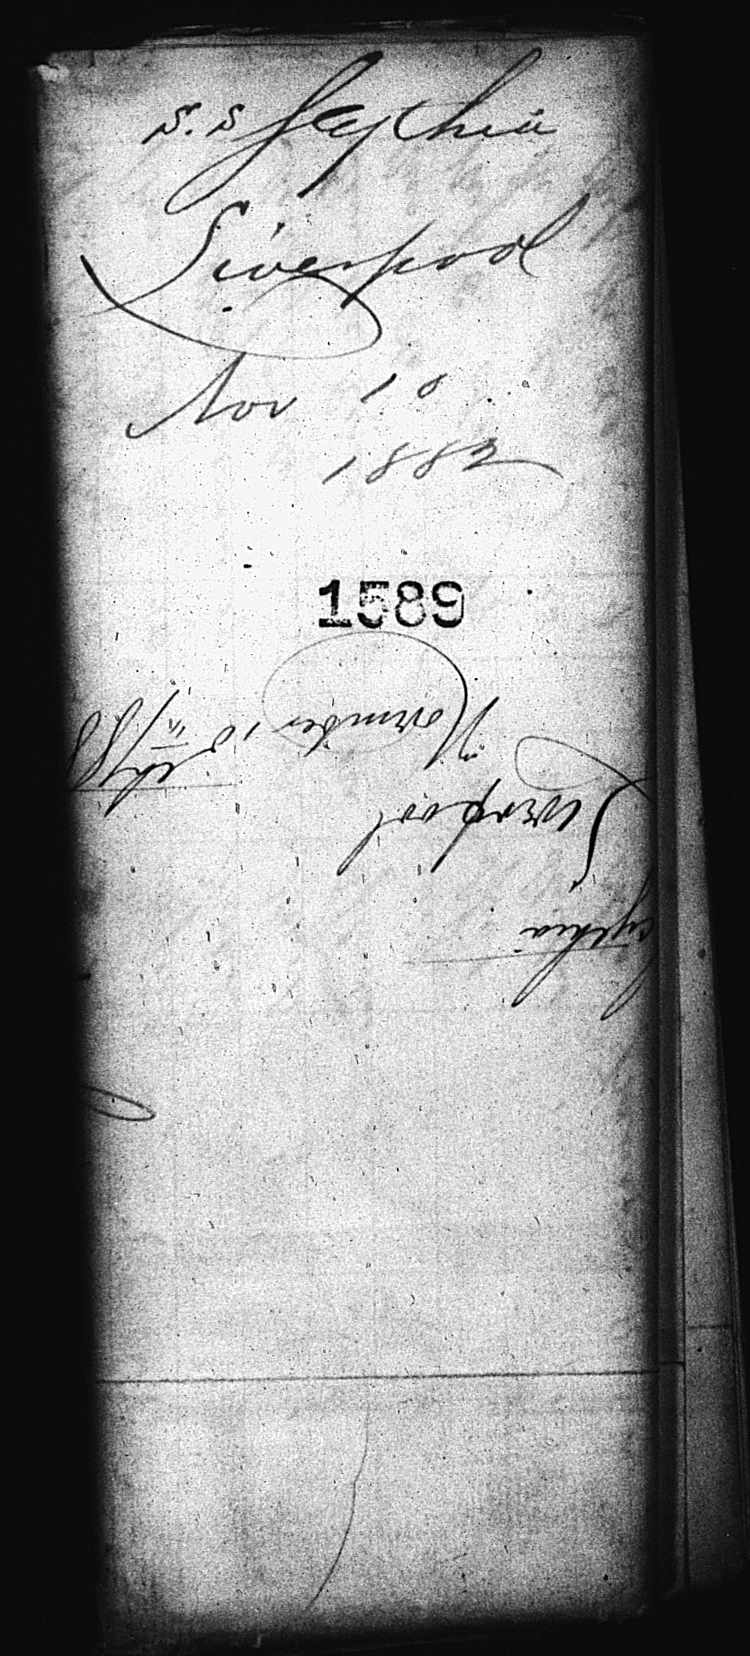 S.S Scythia
Liverpool
Nov 10
1882
1589
Scythia
Liverpool
November 10th